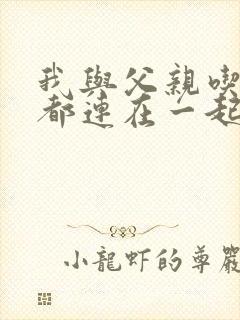 我與父親喫
都連在一起
小龍虾的尊嚴